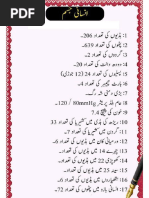 انسانی جسم
1: ہڈیوں کی تعداد 206۔
2: پٹھوں کی تعداد 639۔
3: گردوں کی تعداد 2۔
4: دودھ دانت کی تعداد 20۔
5: پسلیوں کی تعداد 24 (12 جوڑی)
6: ہارٹ چیمبر کی تعداد 4۔
7: بڑی دمنی شہ رگ۔
8: عام بلڈ پریشر 120 / 80mmHg۔
9: خون کی پی ایچ 7.4۔
10: ریڑھ کی ہڈی میں کشیریا کی تعداد 33
11: گردن میں کشیریا کی تعداد 7۔
12: درمیانی کان میں ہڈیوں کی تعداد 6۔
13: چہرے میں ہڈیوں کی تعداد 14۔
14: کھوپڑی میں ہڈیوں کی تعداد 22۔
15: سینے میں ہڈیوں کی تعداد 25۔
16: بازو میں ہڈیوں کی تعداد 6۔
17: انسانی بازو میں پٹھوں کی تعداد 72۔